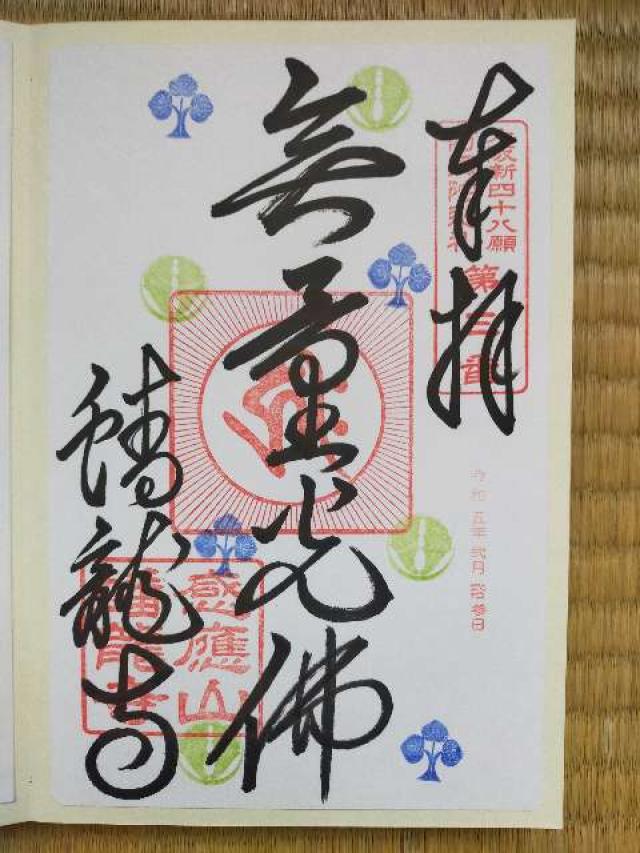 奉拝
坂新四十八願
第三番
令和五年弐月拾参日
無量光佛
蟠龍寺
感應山
蟠龍寺